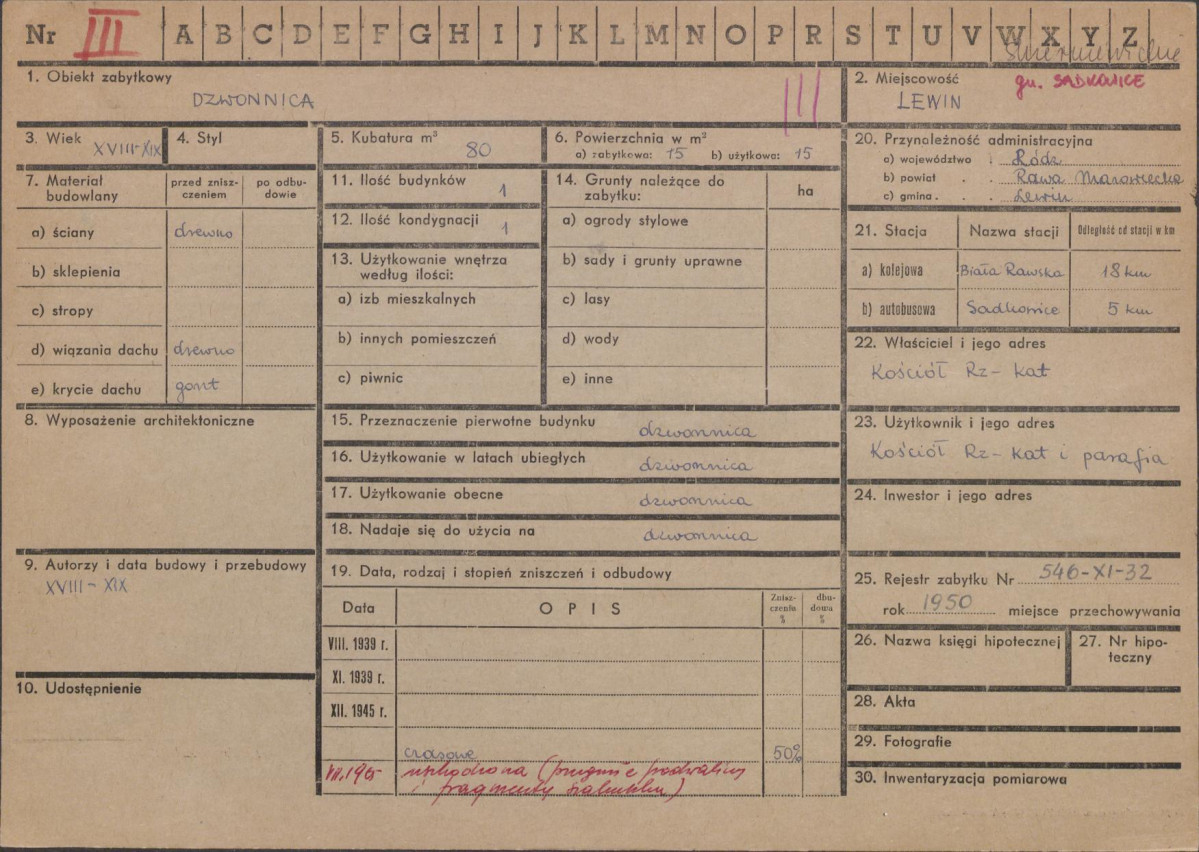 Nr III A B C D E F G H I J K L M N O P R S T U V W X Y Z
1. Obiekt zabytkowy
DZWONNICA
III
2. Miejscowość
gm. SADKOWICE
LEWIN
3. Wiek XVIII-XIX
4. Styl
5. Kubatura m³ 80
6. Powierzchnia w m²
a) zabytkowa: 15 b) użytkowa: 15
20. Przynależność administracyjna
a) województwo : Łódź
b) powiat . . Rawa Mazowiecka
c) gmina . . . Lewin
7. Materiał budowlany
przed zniszczeniem
po odbudowie
a) ściany drewno
b) sklepienia
c) stropy
d) wiązania dachu drewno
e) krycie dachu gont
11. Ilość budynków 1
12. Ilość kondygnacji 1
13. Użytkowanie wnętrza
według ilości:
a) izb mieszkalnych
b) innych pomieszczeń
c) piwnic
14. Grunty należące do
zabytku:
ha
a) ogrody stylowe
b) sady i grunty uprawne
c) lasy
d) wody
e) inne
21. Stacja Nazwa stacji Odległość od stacji w km
a) kolejowa Biała Rawska 18 km
b) autobusowa Sadkowice 5 km
22. Właściciel i jego adres
Kościół Rz-kat
8. Wyposażenie architektoniczne
15. Przeznaczenie pierwotne budynku dzwonnica
16. Użytkowanie w latach ubiegłych dzwonnica
17. Użytkowanie obecne dzwonnica
18. Nadaje się do użycia na dzwonnica
23. Użytkownik i jego adres
Kościół Rz-kat i parafia
24. Inwestor i jego adres
9. Autorzy i data budowy i przebudowy
XVIII - XIX
19. Data, rodzaj i stopień zniszczeń i odbudowy
Data OPIS Zniszczenia % dbudowa %
VIII. 1939 r.
XI. 1939 r.
XII. 1945 r.
czasowe 50%
uszkodzona
i fragmenty
25. Rejestr zabytku Nr 546-XI-32
rok 1950 miejsce przechowywania
26. Nazwa księgi hipotecznej
27. Nr hipoteczny
10. Udostępnienie
28. Akta
29. Fotografie
30. Inwentaryzacja pomiarowa